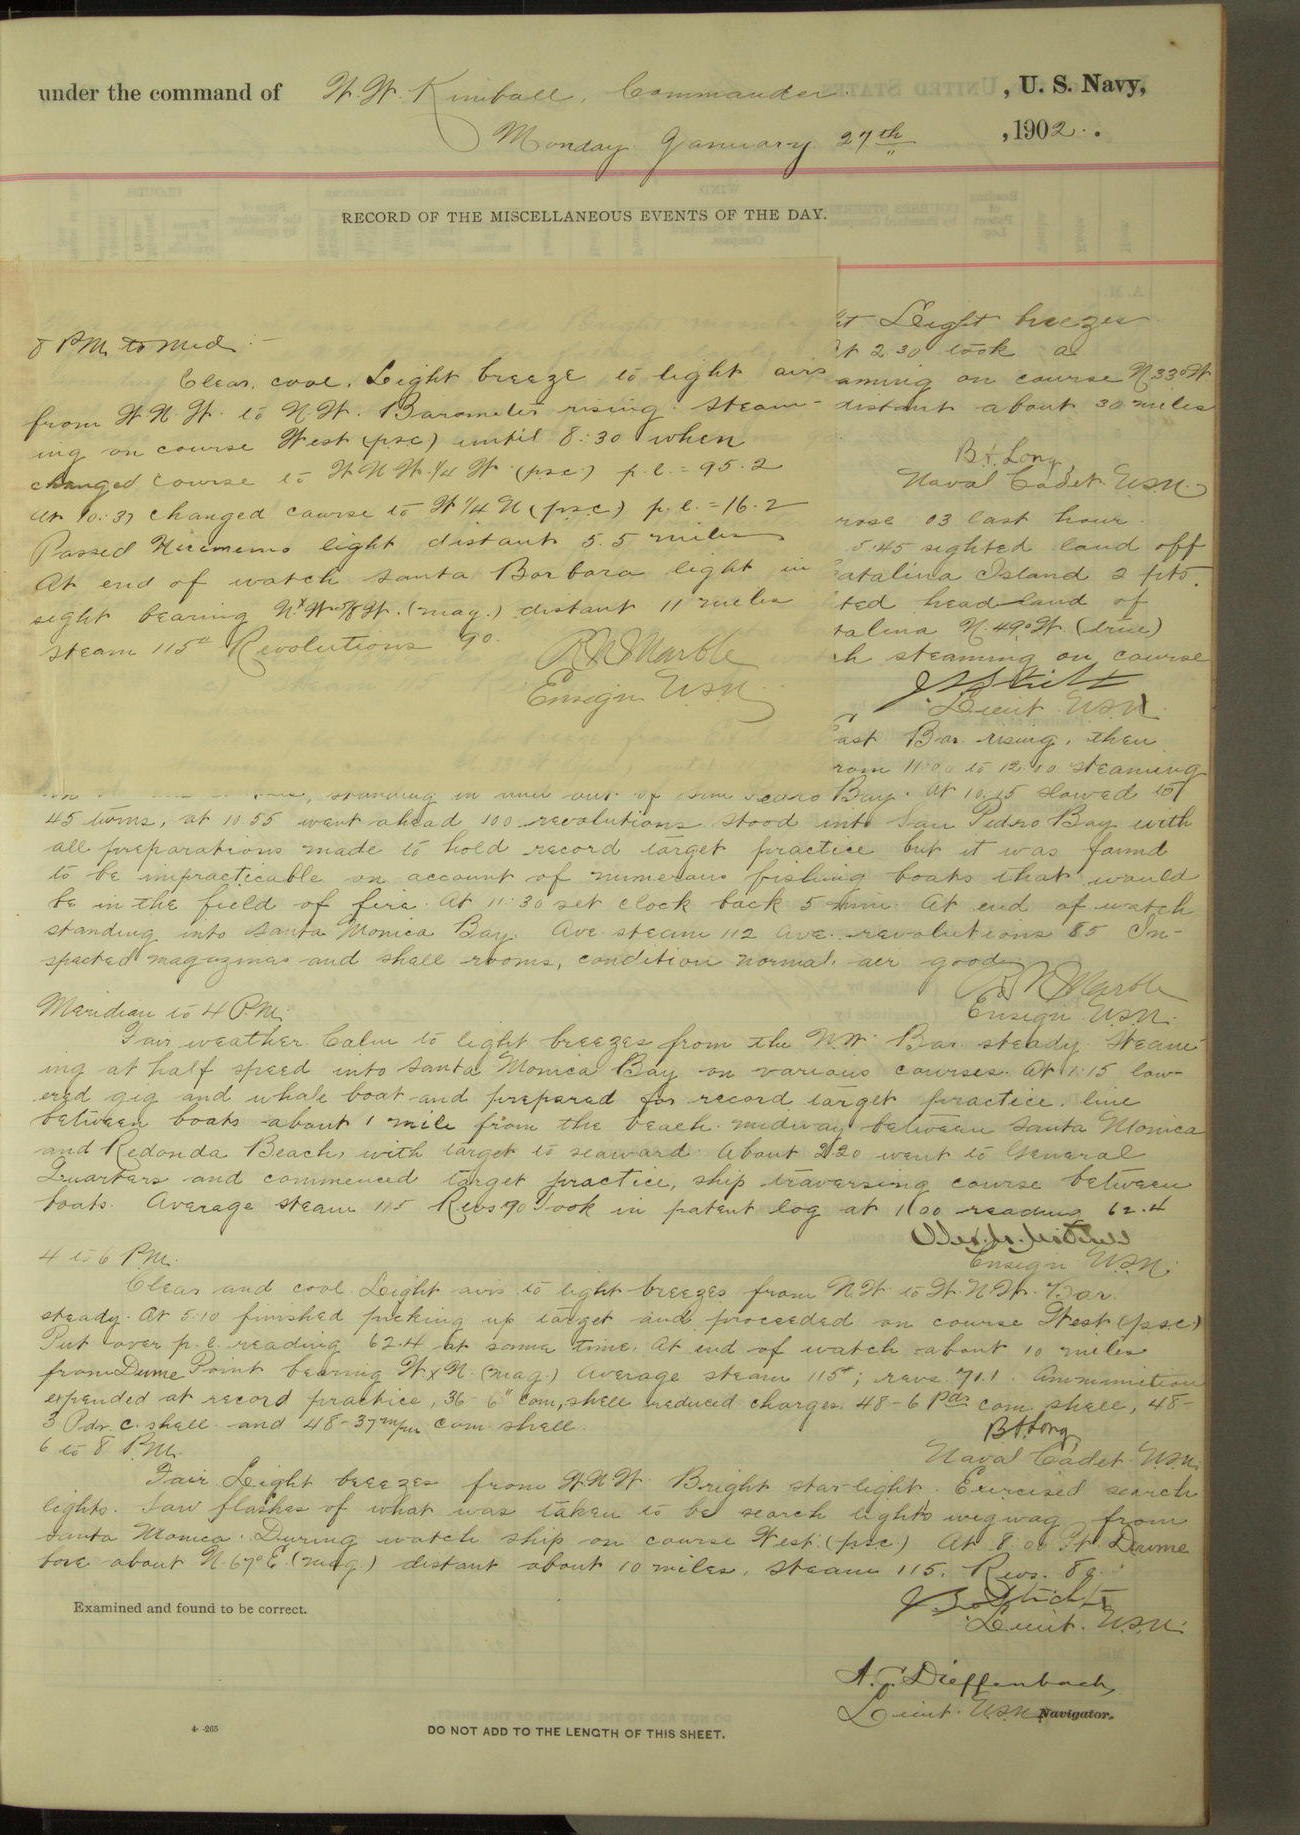 under the command of W. W. Kimball, Commander , U. S. Navy,
Monday January 27th , 1902.
RECORD OF THE MISCELLANEOUS EVENTS OF THE DAY.
8 P.M. to Mid:-
Clear, cool. Light breeze to light airs
from W.N.W. to N.W. Barometer rising. Steam-
ing on course West (psc) until 8:30 when
changed course to W.N.W. 1/4 W. (psc) p.l. = 95.2
At 10:37 changed course to W 1/4 N (p.s.c) p.l. = 16.2
Passed light distant 5.5 miles
At end of watch Santa Barbara light in
sight bearing (mag.) distant 11 miles
Steam 115# Revolutions 90.
R N Marble
Ensign U.S.N.
Light breezes
At 2.30 took a
aming on course N 33° W
distant about 30 miles
B. A. Long,
Naval Cadet U.S.N.
rose 03 last hour.
5.45 sighted land off
Catalina Island 2 pts.
ted head land of
talina N. 49° W. (true)
ch steaming on course
Lieut U.S.N.
East Bar rising, then
from 11:00 to 12:10 steaming
standing in and out of San Pedro Bay. At 10.15 slowed to
45 turns, at 10 55 went ahead 100 revolutions stood into San Pedro Bay with
all preparations made to hold record target practice but it was found
to be impracticable on account of numerous fishing boats that would
be in the field of fire. At 11:30 set clock back 5 min. At end of watch
standing into Santa Monica Bay. Ave. steam 112 Ave. revolutions 85 In-
spected magazines and shell rooms, condition normal, air good.
R N Marble
Ensign U.S.N.
Meridian to 4 P.M.
Fair weather. Calm to light breezes from the N.W. Bar. steady. Steam-
ing at half speed into Santa Monica Bay on various courses. At 1:15 low-
ered gig and whale boat and prepared for record target practice. line
between boats about 1 mile from the beach midway between Santa Monica
and Redonda Beach, with target to seaward. About 2 20 went to General
Quarters and commenced target practice, ship traversing course between
boats. Average steam 115 Revs 70 Took in patent log at 1 00 reading 62.4
Ensign U.S.N.
4 to 6 P.M.
Clear and cool. Light airs to light breezes from N.W. to W.N.W. Bar.
steady. At 5:10 finished picking up target and proceeded on course West (psc)
Put over p.l. reading 62.4 at same time. At end of watch about 10 miles
from Dume Point bearing W x N. (mag.) Average steam 115#; revs. 71.1. Ammunition
expended at record practice, 36 - 6" com, shell reduced charges. 48 - 6 Pdr com. shell, 48 -
3 Pdr. c. shell. and 48 - 37 m/m com shell.
B A Long,
Naval Cadet U.S.N.
6 to 8 P.M.
Fair. Light breezes from W.N.W. Bright star-light. Exercised search
lights. Saw flashes of what was taken to be search lights wigwag from
Santa Monica. During watch ship on course West. (psc.) At 8 00 Pt. Dume
bore about N. 67° E. (mag.) distant about 10 miles. Steam 115. Revs.
Lieut. U.S.N.
Examined and found to be correct.
Dieffenbach,
Lieut. U.S.N. Navigator.
4-265
DO NOT ADD TO THE LENGTH OF THIS SHEET.